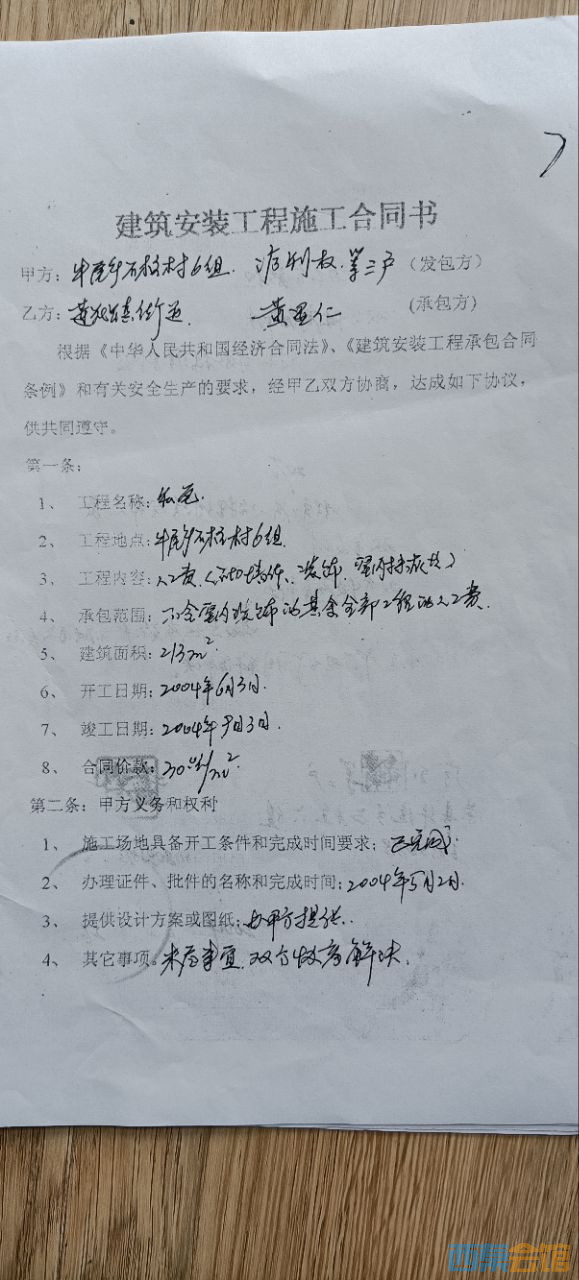 建筑安装工程施工合同书
甲方：牛尾乡石枝村6组. 权. 等三户（发包方）
乙方：镇街道. 黄 仁（承包方）
根据《中华人民共和国经济合同法》、《建筑安装工程承包合同
条例》和有关安全生产的要求，经甲乙双方协商，达成如下协议，
供共同遵守。
第一条：
1、 工程名称：私宅.
2、 工程地点：牛尾乡石枝村6组.
3、 工程内容：人工费（
4、 承包范围：不含室内装饰的其余全部工程的人工费.
5、 建筑面积：213m²
6、 开工日期：2004年6月3日.
7、 竣工日期：2004年9月3日.
8、 合同价款：/m².
第二条：甲方义务和权利
1、 施工场地具备开工条件和完成时间要求：已完成.
2、 办理证件、批件的名称和完成时间：2004年5月2日.
3、 提供设计方案或图纸：由甲方提供.
4、 其它事项。未尽事宜.双方协商解决.
西祠会馆